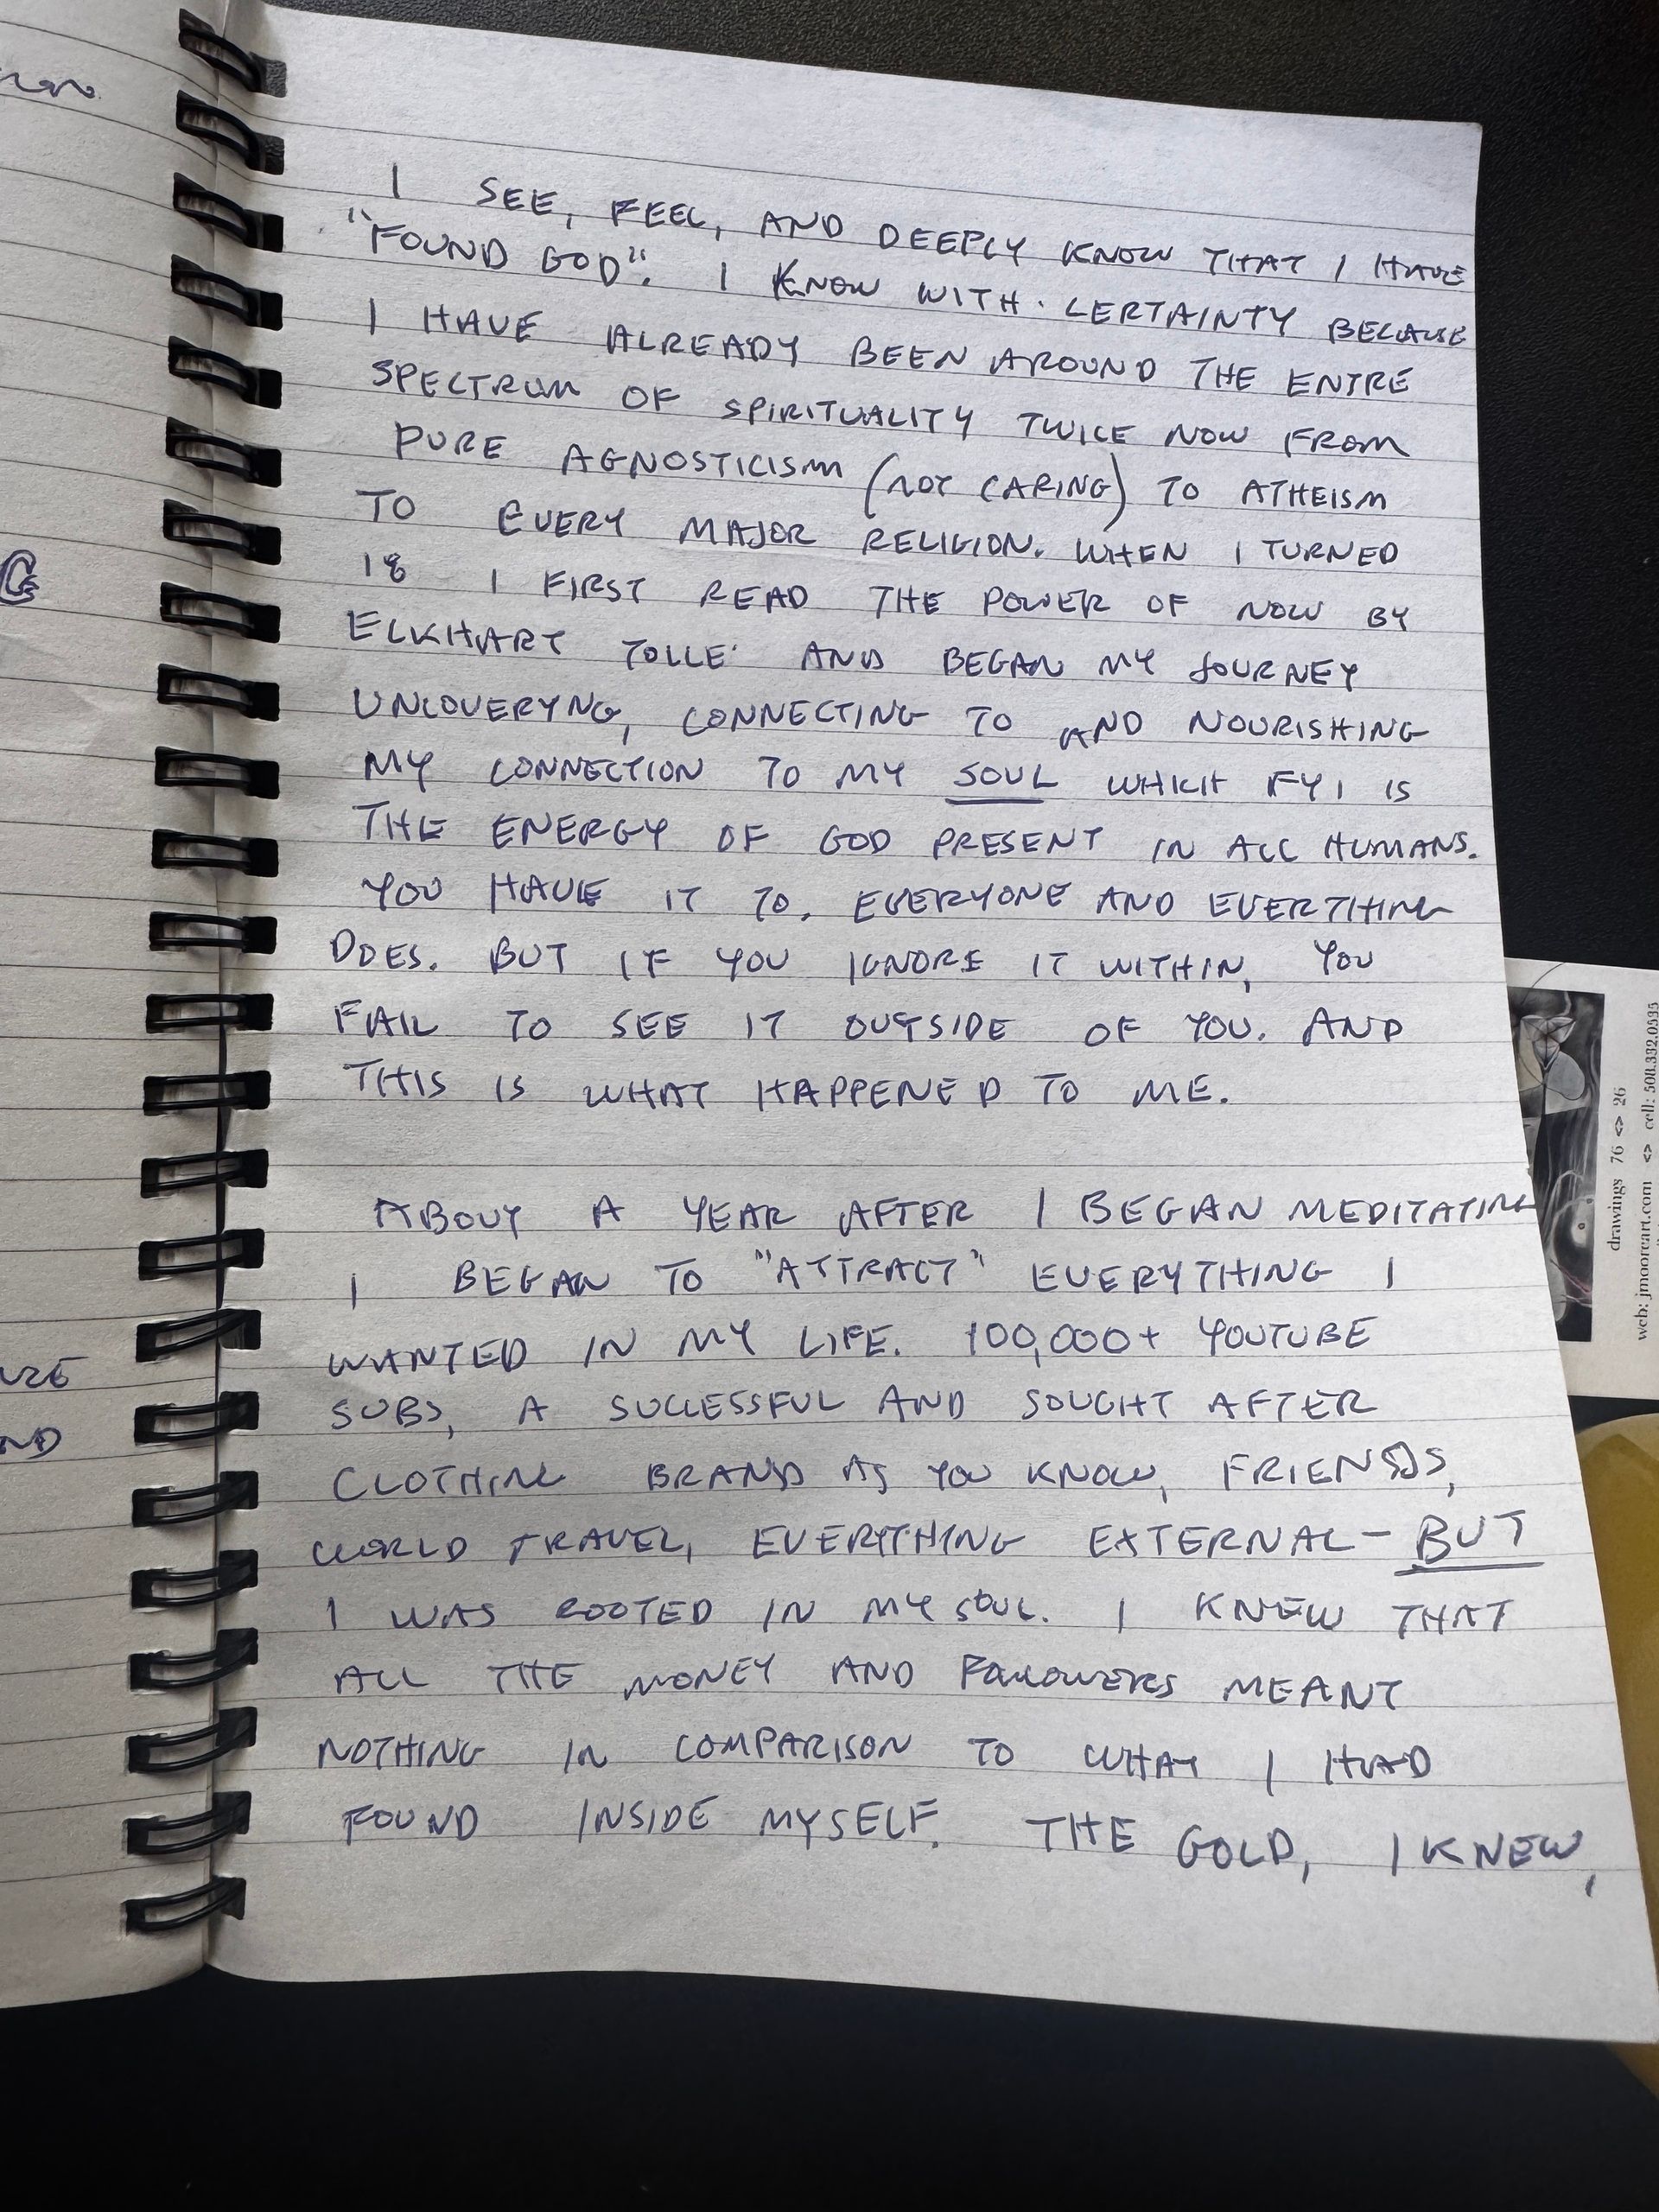 I SEE, FEEL, AND DEEPLY KNOW THAT I HAVE
"FOUND GOD". I KNOW WITH CERTAINTY BECAUSE
I HAVE ALREADY BEEN AROUND THE ENTIRE
SPECTRUM OF SPIRITUALITY TWICE NOW FROM
PURE AGNOSTICISM (NOT CARING) TO ATHEISM
TO EVERY MAJOR RELIGION. WHEN I TURNED
18 I FIRST READ THE POWER OF NOW BY
ELKHART TOLLE AND BEGAN MY JOURNEY
UNCOVERYNG, CONNECTING TO AND NOURISHING
MY CONNECTION TO MY SOUL WHICH FYI IS
THE ENERGY OF GOD PRESENT IN ALL HUMANS.
YOU HAVE IT TO. EVERYONE AND EVERTHING
DOES. BUT IF YOU IGNORE IT WITHIN, YOU
FAIL TO SEE IT OUTSIDE OF YOU. AND
THIS IS WHAT HAPPENED TO ME.
ABOUT A YEAR AFTER I BEGAN MEDITATING
I BEGAN TO "ATTRACT" EVERYTHING I
WANTED IN MY LIFE. 100,000+ YOUTUBE
SUBS, A SUCCESSFUL AND SOUGHT AFTER
CLOTHING BRAND AS YOU KNOW, FRIENDS,
WORLD TRAVEL, EVERYTHING EXTERNAL - BUT
I WAS ROOTED IN MY SOUL. I KNEW THAT
ALL THE MONEY AND FOLLOWERS MEANT
NOTHING IN COMPARISON TO WHAT I HAD
FOUND INSIDE MYSELF. THE GOLD, I KNEW,
drawings 76 <> 26
web: jmooreart.com <> cell: 508.332.0535